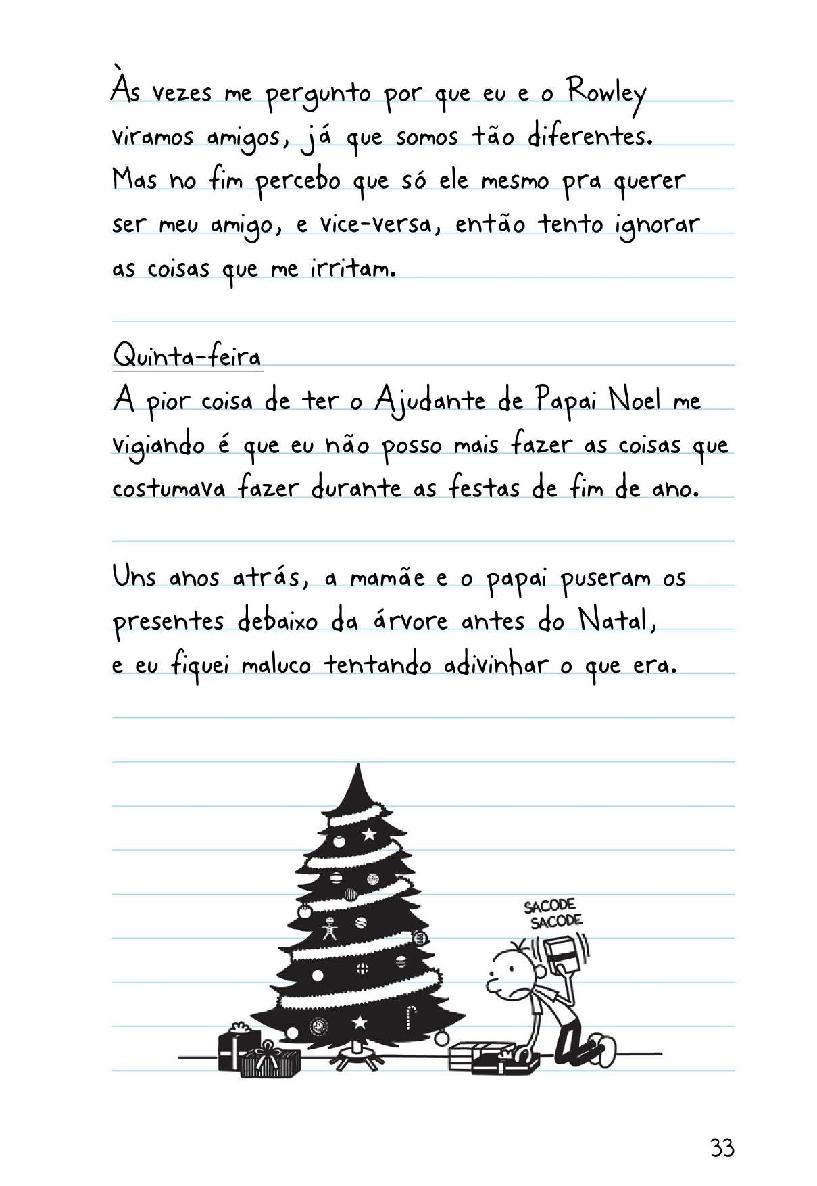 Às vezes me pergunto por que eu e o Rowley
viramos amigos, já que somos tão diferentes.
Mas no fim percebo que só ele mesmo pra querer
ser meu amigo, e vice-versa, então tento ignorar
as coisas que me irritam.
Quinta-feira
A pior coisa de ter o Ajudante de Papai Noel me
vigiando é que eu não posso mais fazer as coisas que
costumava fazer durante as festas de fim de ano.
Uns anos atrás, a mamãe e o papai puseram os
presentes debaixo da árvore antes do Natal,
e eu fiquei maluco tentando adivinhar o que era.
SACODE
SACODE
33